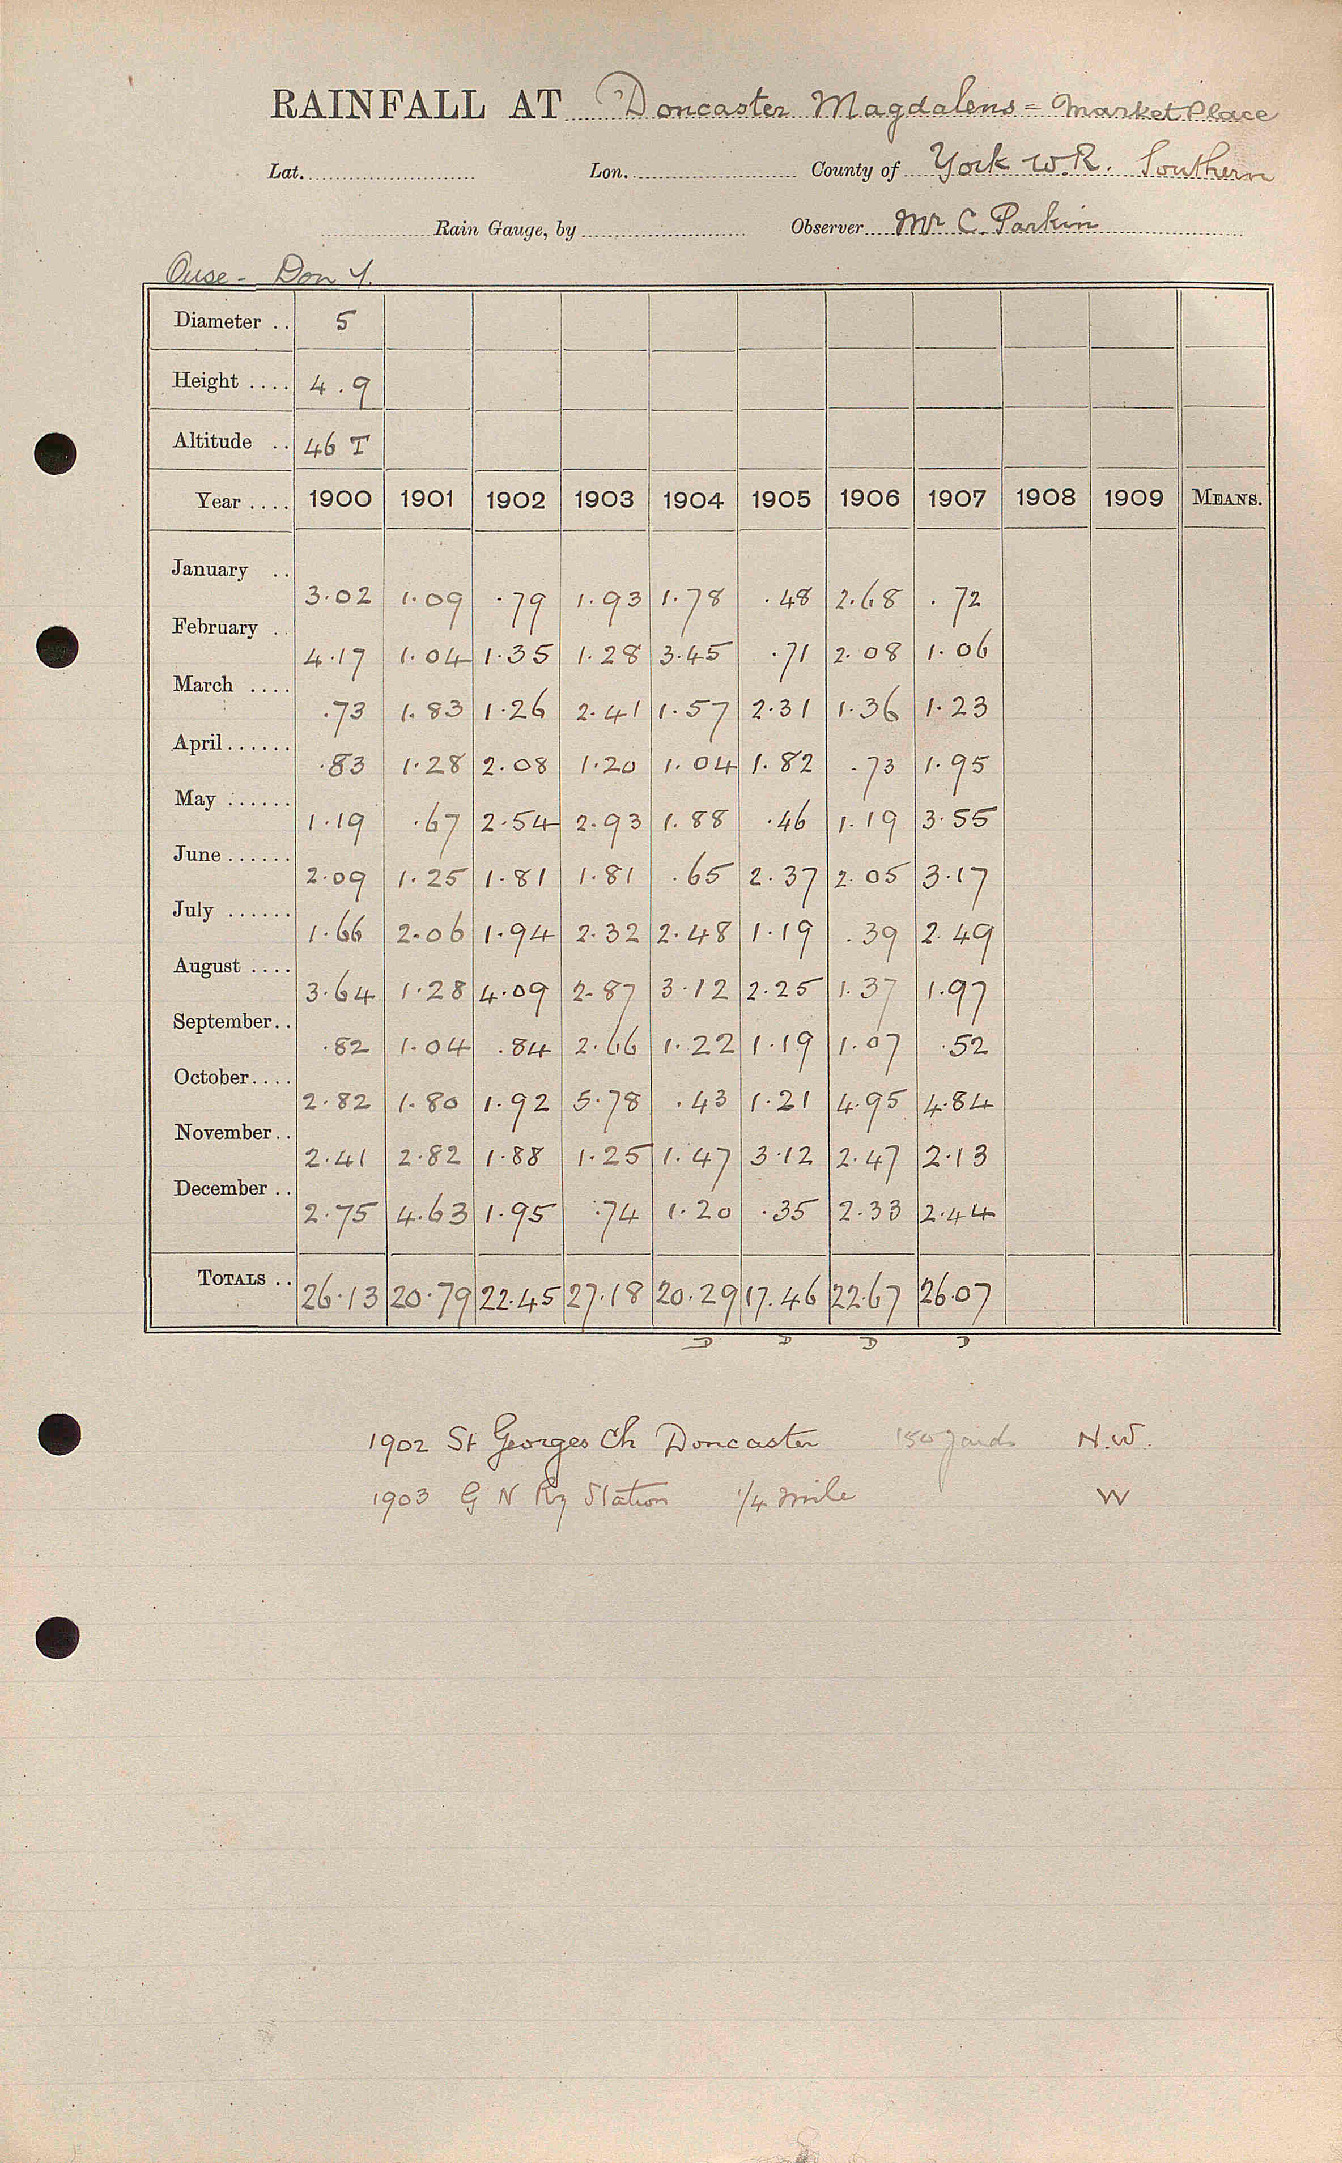 RAINFALL AT Doncaster Magdalens = Market Place
Lat. Lon. County of York W.R. Southern
Rain Gauge, by Observer Mr C. Parkin
Ouse - Don Y.
Diameter .. 5
Height .... 4.9
Altitude .. 46 T
Year .... 1900 1901 1902 1903 1904 1905 1906 1907 1908 1909 MEANS.
January .. 3.02 1.09 .79 1.93 1.78 .48 2.68 .72
February . 4.17 1.04 1.35 1.28 3.45 .71 2.08 1.06
March .... .73 1.83 1.26 2.41 1.57 2.31 1.36 1.23
April...... .83 1.28 2.08 1.20 1.04 1.82 .73 1.95
May ...... 1.19 .67 2.54 2.93 1.88 .46 1.19 3.55
June ...... 2.09 1.25 1.81 1.81 .65 2.37 2.05 3.17
July ...... 1.66 2.06 1.94 2.32 2.48 1.19 .39 2.49
August .... 3.64 1.28 4.09 2.87 3.12 2.25 1.37 1.97
September.. .82 1.04 .84 2.66 1.22 1.19 1.07 .52
October.... 2.82 1.80 1.92 5.78 .43 1.21 4.95 4.84
November.. 2.41 2.82 1.88 1.25 1.47 3.12 2.47 2.13
December .. 2.75 4.63 1.95 .74 1.20 .35 2.33 2.44
TOTALS .. 26.13 20.79 22.45 27.18 20.29 17.46 22.67 26.07
D D D D
1902 St Georges Ch Doncaster 150 yards N.W.
1903 G N Ry Station 1/4 mile W